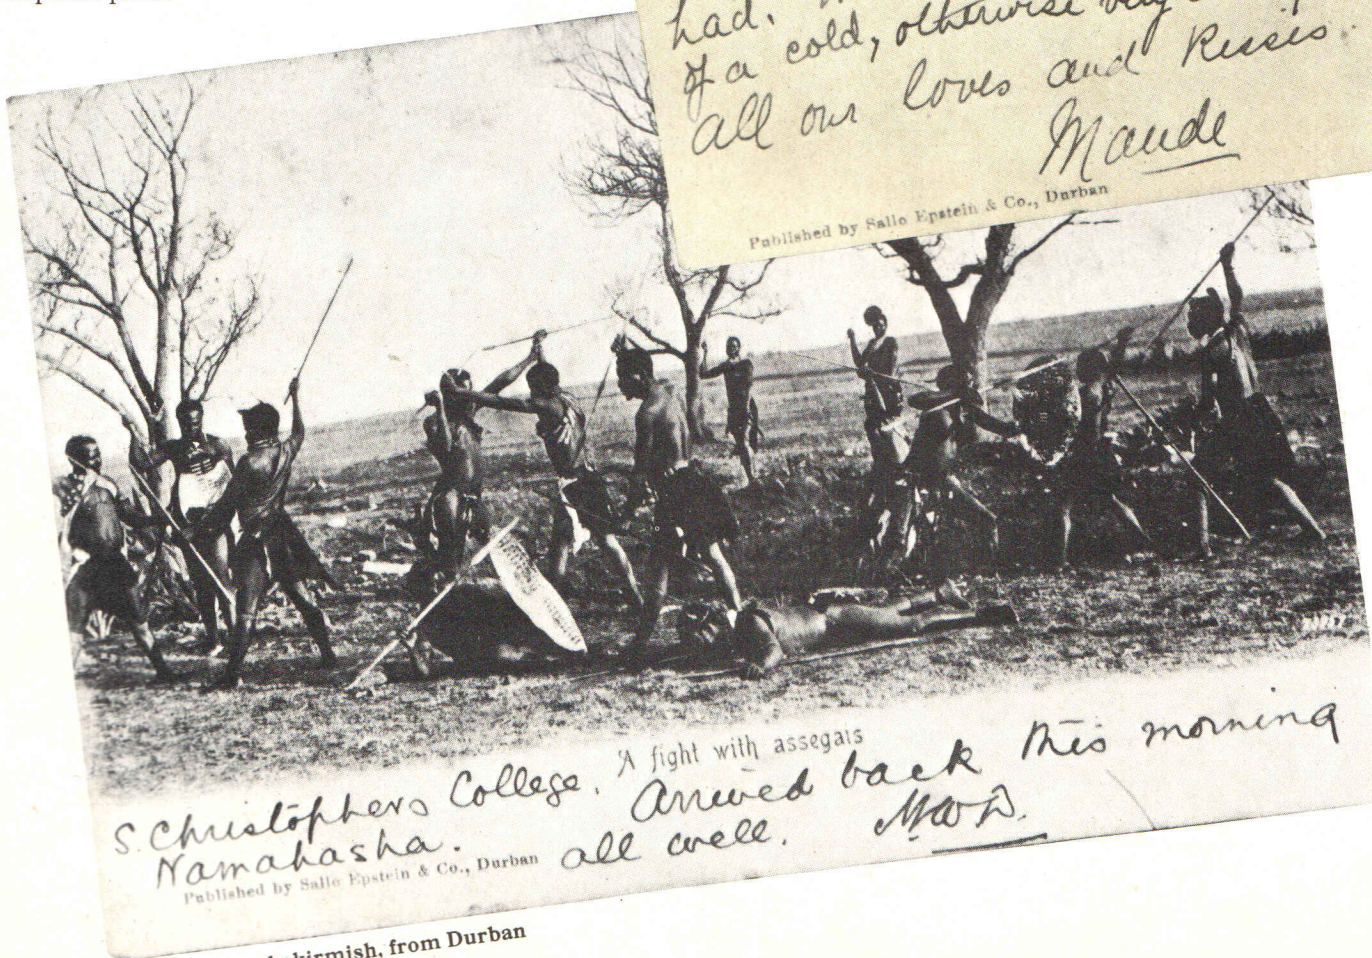 had.
of a cold, otherwise very
all our loves and kisses
Maude
Published by Sallo Epstein & Co., Durban
A fight with assegais
S. Christophers College. Arrived back this morning
Namahasha. all well. M.W.D.
Published by Sallo Epstein & Co., Durban
skirmish, from Durban